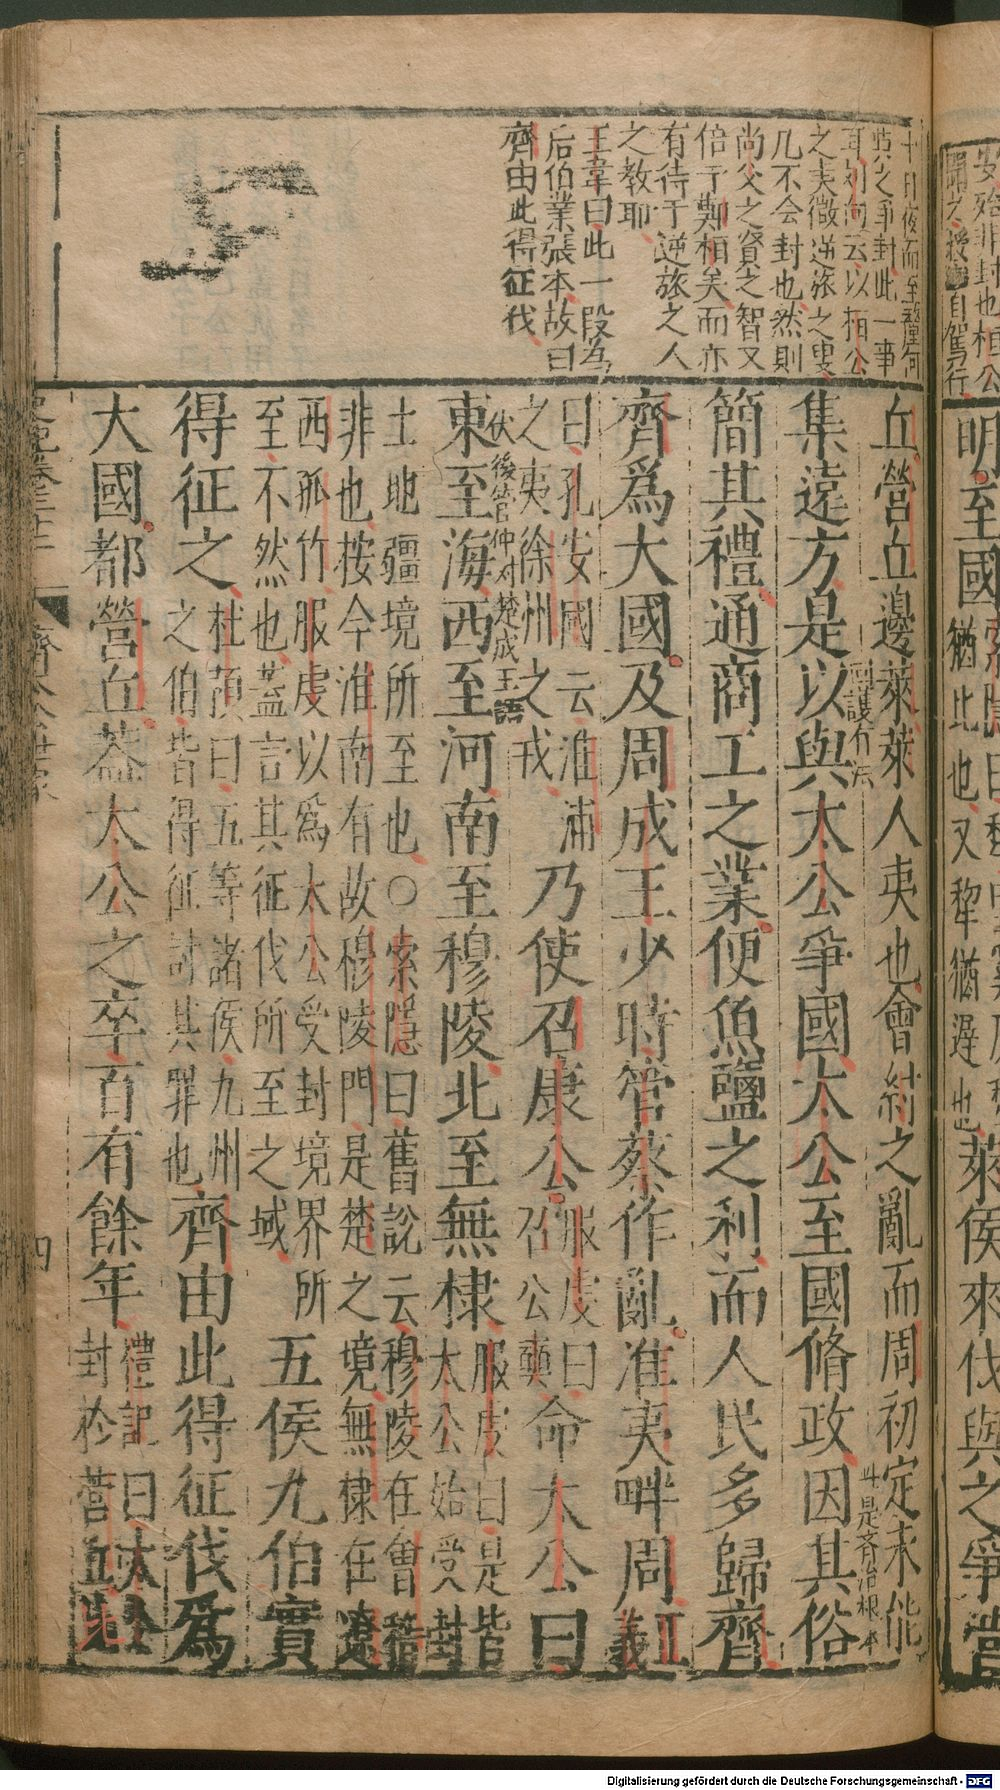 安殆非封也桓公
聞之援轡自駕行
十日夜而至釐何
與之爭封此一事
耳刘向云以桓公
之夷微逆旅之叟
几不会封也然則
尚父之賢之智又
倍于鄭桓矣而亦
有待于逆旅之人
之教耶
王韋曰此一段為
后伯業張本故曰
齊由此得征伐
明至國
猶此也又犁猶遲也
萊侯來伐與之爭營
丘營丘邊萊萊人夷也會紂之亂而周初定未能
集遠方是以與太公爭國太公至國脩政因其俗
回護有法
此是齐治根本
簡其禮通商工之業便魚鹽之利而人民多歸齊
齊爲大國及周成王少時管蔡作亂淮夷畔周
正義
曰孔安國云淮浦
之夷徐州之戎
乃使召康公
服虔曰
召公奭
命太公曰
伏後管仲对楚成王語
東至海西至河南至穆陵北至無棣
服虔曰是皆
太公始受封
土地疆境所至也○索隱曰舊說云穆陵在會稽
非也按今淮南有故穆陵門是楚之境無棣在遼
西孤竹服虔以爲太公受封境界所
至不然也蓋言其征伐所至之域
五侯九伯實
得征之
杜預曰五等諸侯九州
之伯皆得征討其罪也
齊由此得征伐爲
大國都營丘蓋太公之卒百有餘年
禮記曰太公
封於營丘
史記卷三十二
齊太公世家
四
Digitalisierung gefördert durch die Deutsche Forschungsgemeinschaft - DFG